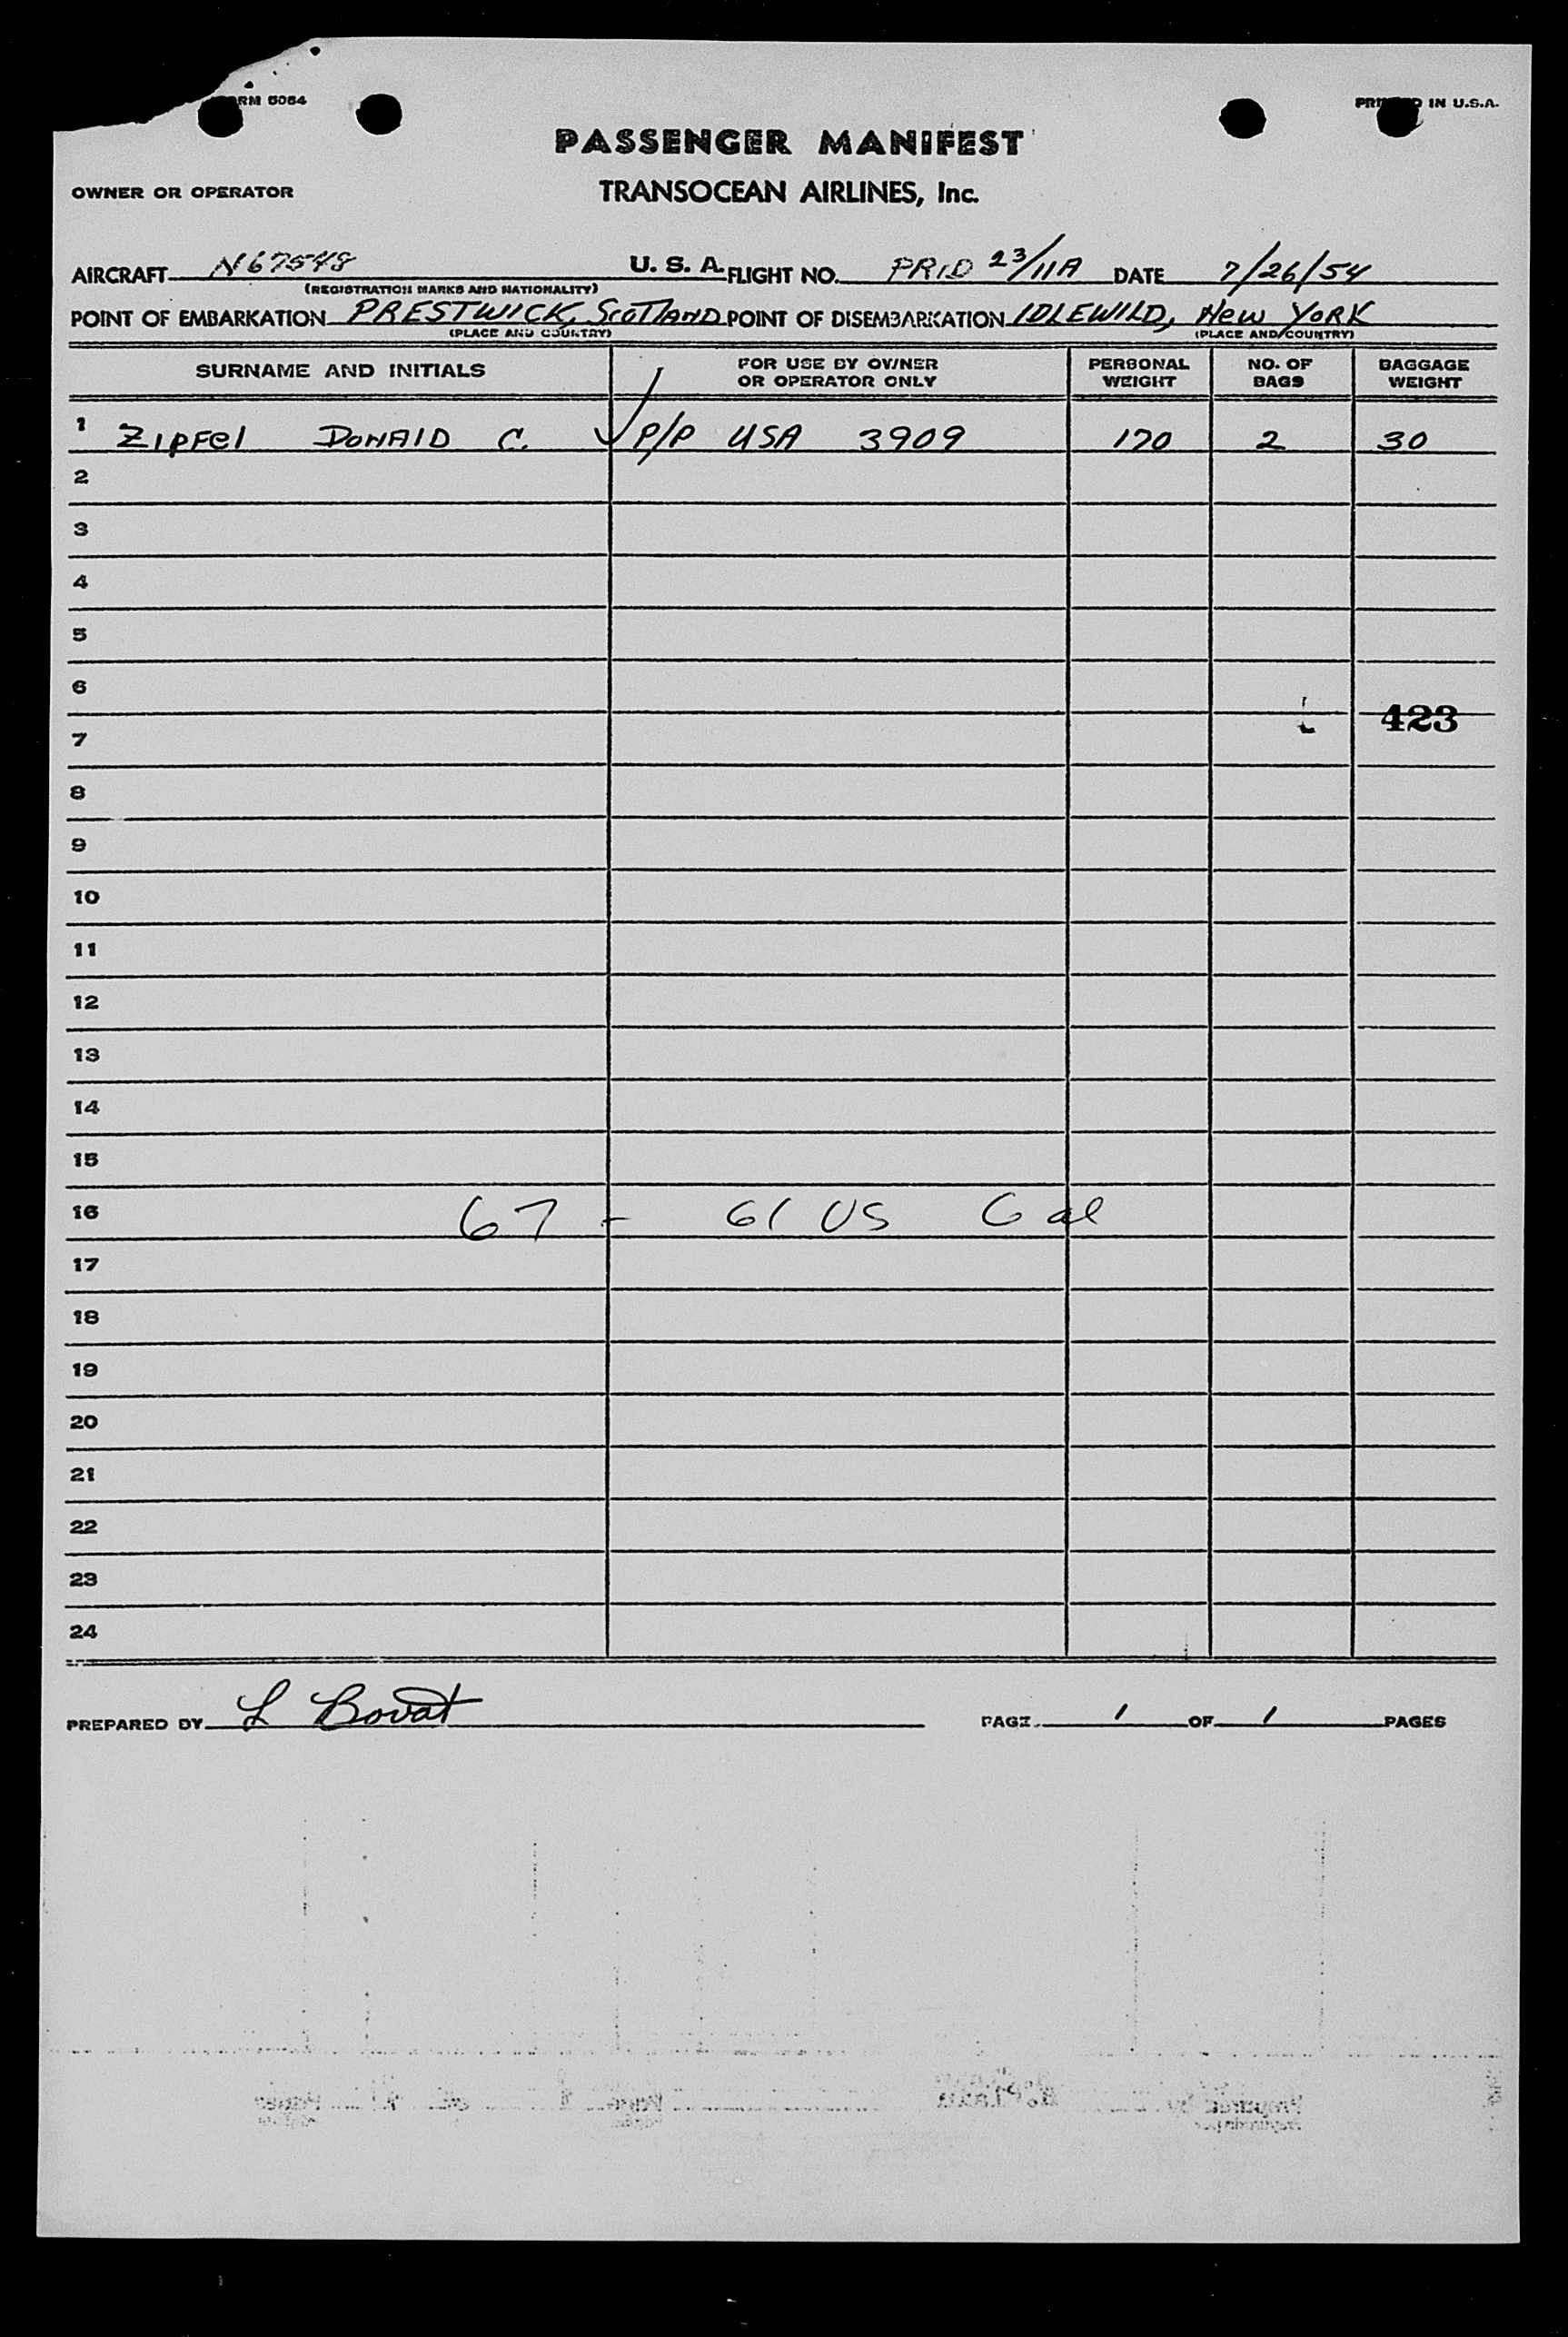 FORM 5064 PRINTED IN U.S.A.
PASSENGER MANIFEST
OWNER OR OPERATOR TRANSOCEAN AIRLINES, Inc.
AIRCRAFT N67548 U. S. A. FLIGHT NO. PRID 23/11A DATE 7/26/54
(REGISTRATION MARKS AND NATIONALITY)
POINT OF EMBARKATION PRESTWICK, ScoTlAND POINT OF DISEMBARKATION IDLEWILD, New YoRK
(PLACE AND COUNTRY) (PLACE AND COUNTRY)
SURNAME AND INITIALS FOR USE BY OWNER OR OPERATOR ONLY PERSONAL WEIGHT NO. OF BAGS BAGGAGE WEIGHT
1 ZIPFel DoNAlD C. ✓ P/P USA 3909 170 2 30
2
3
4
5
6
423
7
8
9
10
11
12
13
14
15
16 67 - 61 US 6 al
17
18
19
20
21
22
23
24
PREPARED BY L Bovat PAGE 1 OF 1 PAGES